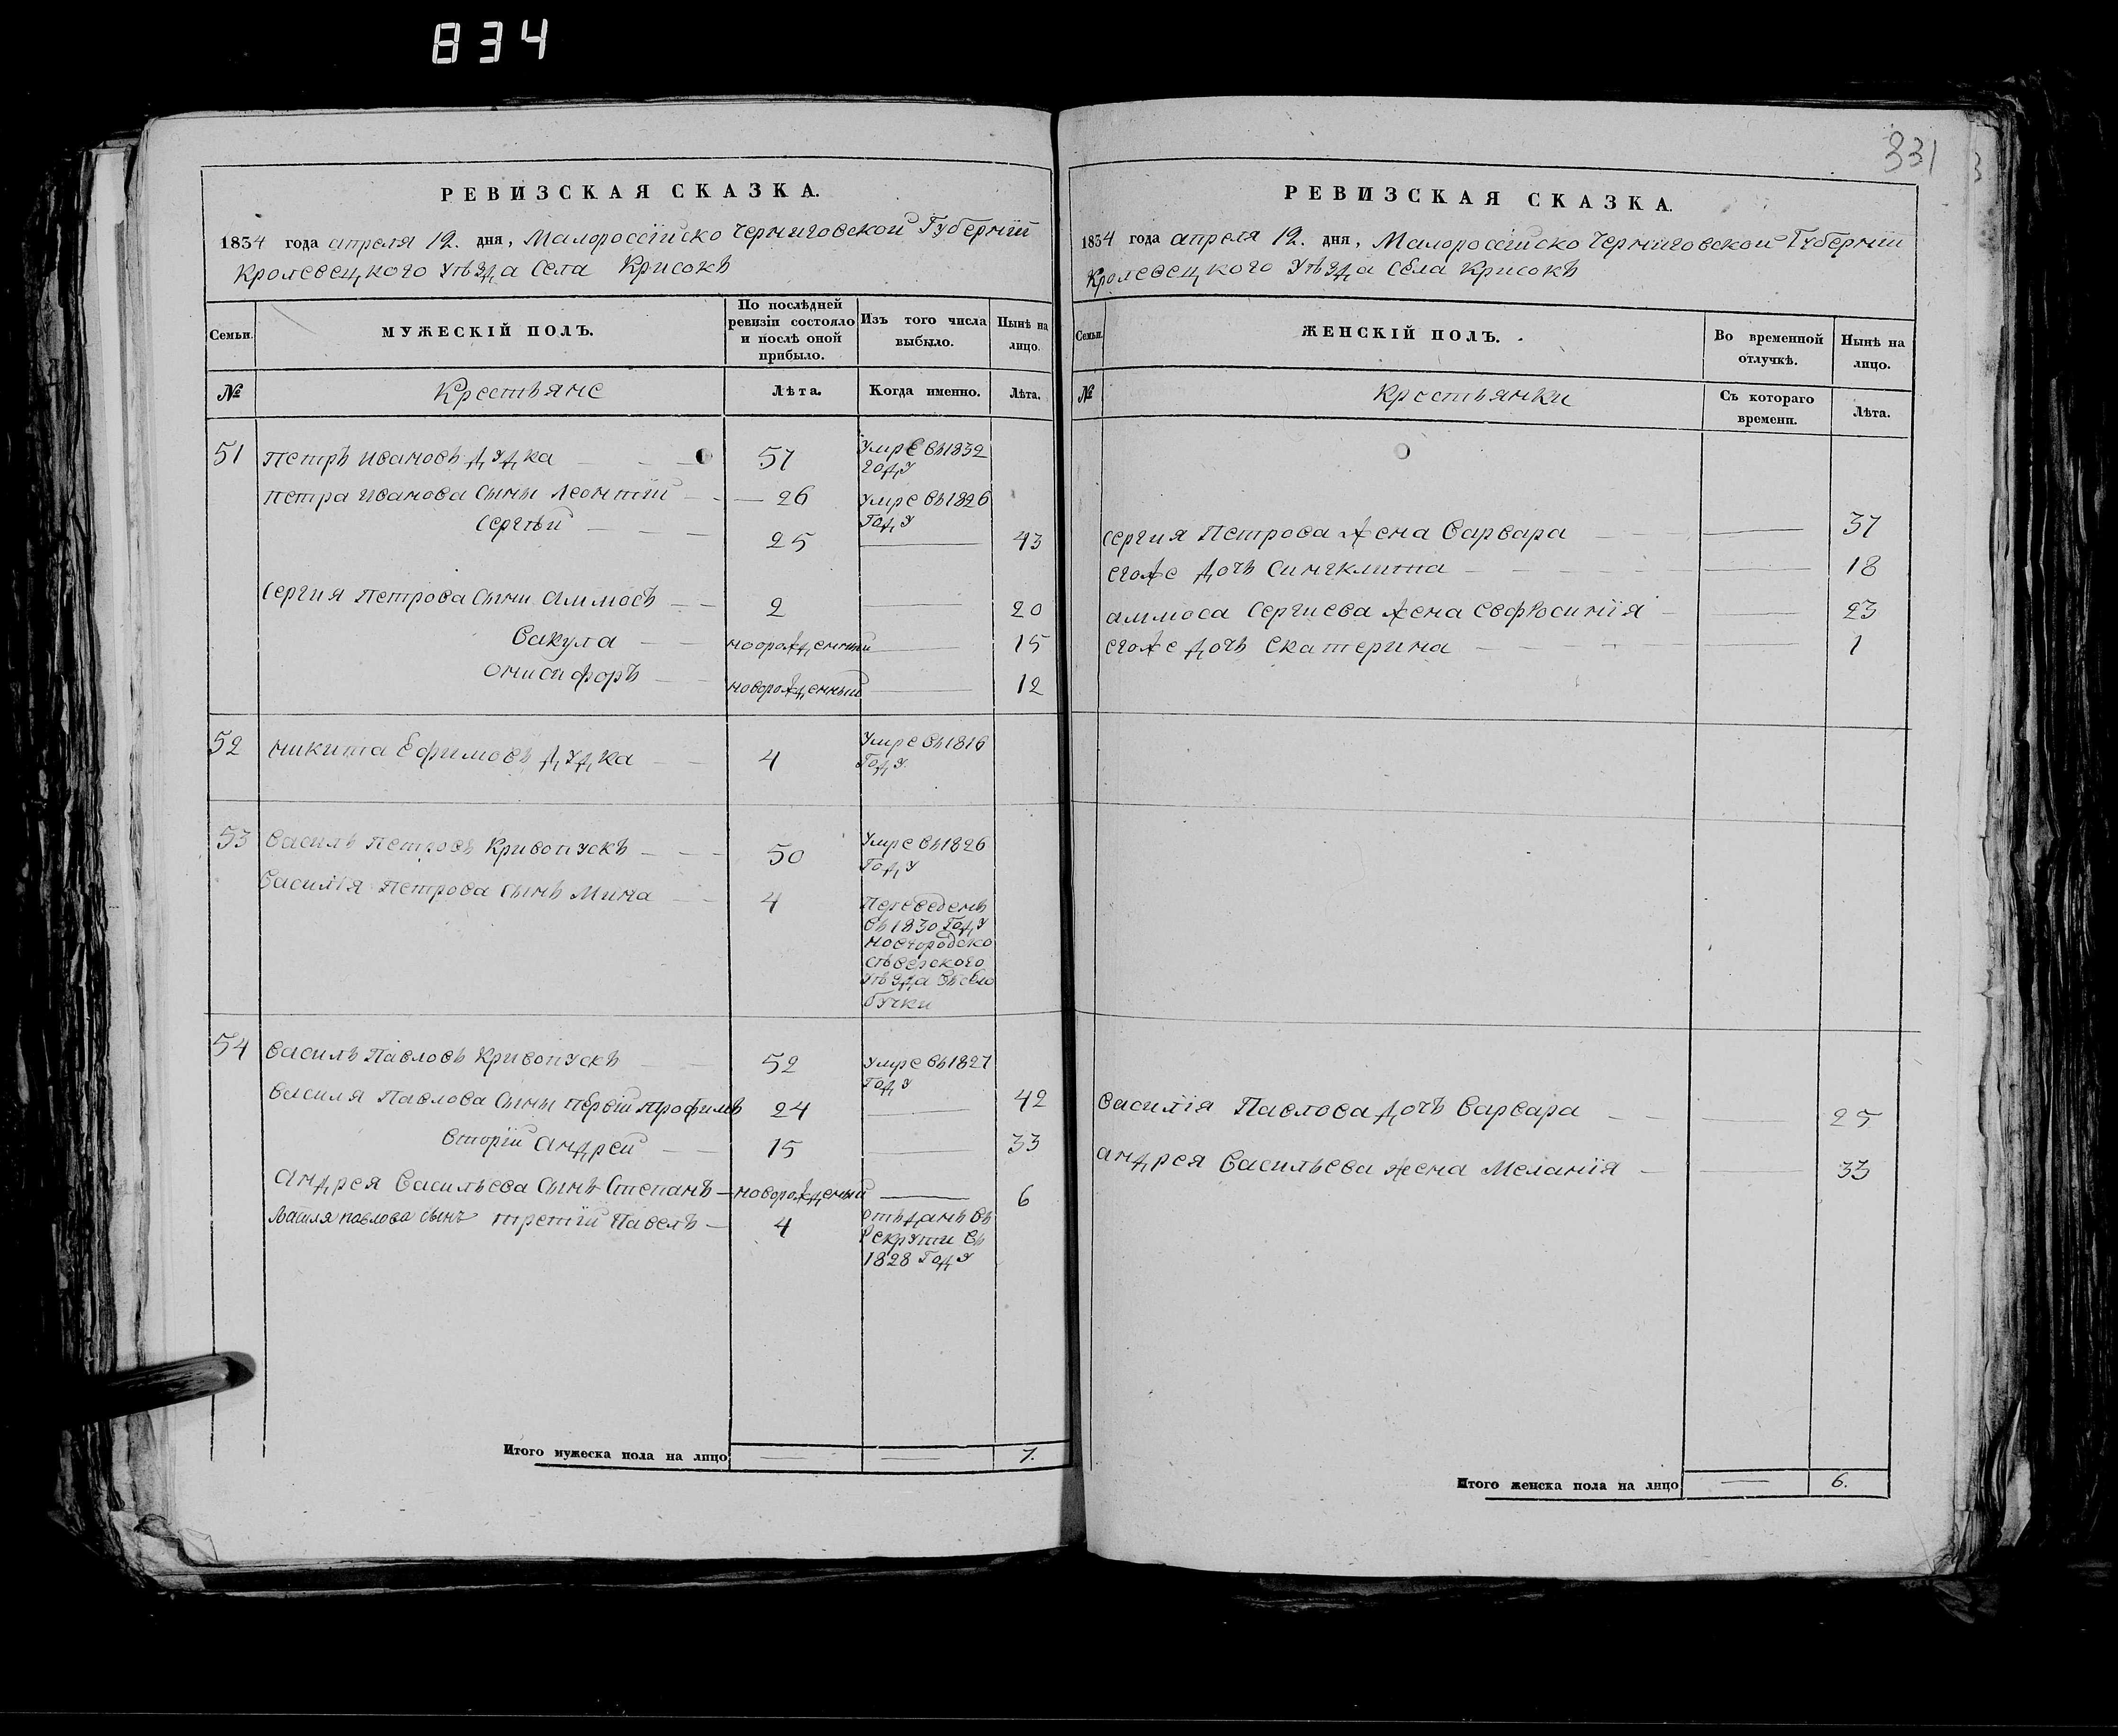 834
331
РЕВИЗСКАЯ СКАЗКА.
1834 года апреля 12. дня, Малороссійско Черниговской Губерній
Кролевецкого уѣзда Села Крисокъ
Семьи.
МУЖЕСКІЙ ПОЛЪ.
По послѣдней
ревизіи состояло
и послѣ оной
прибыло.
Изъ того числа
выбыло.
Нынѣ на
лицо.
№
Крестьяне
Лѣта.
Когда именно.
Лѣта.
51 Петръ Ивановъ Дудка 57 умре въ 1832
году
Петра Иванова Сыны Леонтій 26 умре въ 1826
Году
Сергѣй 25 43
Сергия Петрова Сыны Аммосъ 2 20
Вакула новорожденный 15
Онисифоръ новорожденный 12
52 Никита Ефимовъ Дудка 4 умре въ 1816
Году
53 Василь Петровъ Кривопускъ 50 умре въ 1826
Году
Василія Петрова Сынъ Мина 4 Переведенъ
въ 1830 Году
Новгородско
сѣверского
уѣзда въ село
бучки
54 Василь Павловъ Кривопускъ 52 умре въ 1827
Году
Василя Павлова Сыны Первій Трофимъ 24 42
Вторій Андрей 15 33
Андрея Васильева Сынъ Степанъ новорожденый 6
Василя Павлова сынъ третій Павелъ 4 отъданъ въ
Рекрути въ
1828 Году
Итого мужеска пола на лицо 7.
РЕВИЗСКАЯ СКАЗКА.
1834 года апреля 12. дня, Малороссійско Черниговской Губерніи
Кролевецкого уѣзда Села Крисокъ
Семьи.
ЖЕНСКІЙ ПОЛЪ.
Во временной
отлучкѣ.
Нынѣ на
лицо.
№
Крестьянки
Съ котораго
времени.
Лѣта.
Сергия Петрова жена Варвара 37
Егоже дочь Синклитиа 18
Аммоса Сергиева жена Евфросинія 23
Егоже дочь Екатерина 1
Василія Павлова дочь Варвара 25
Андрея Васильева жена Меланія 33
Итого женска пола на лицо 6.